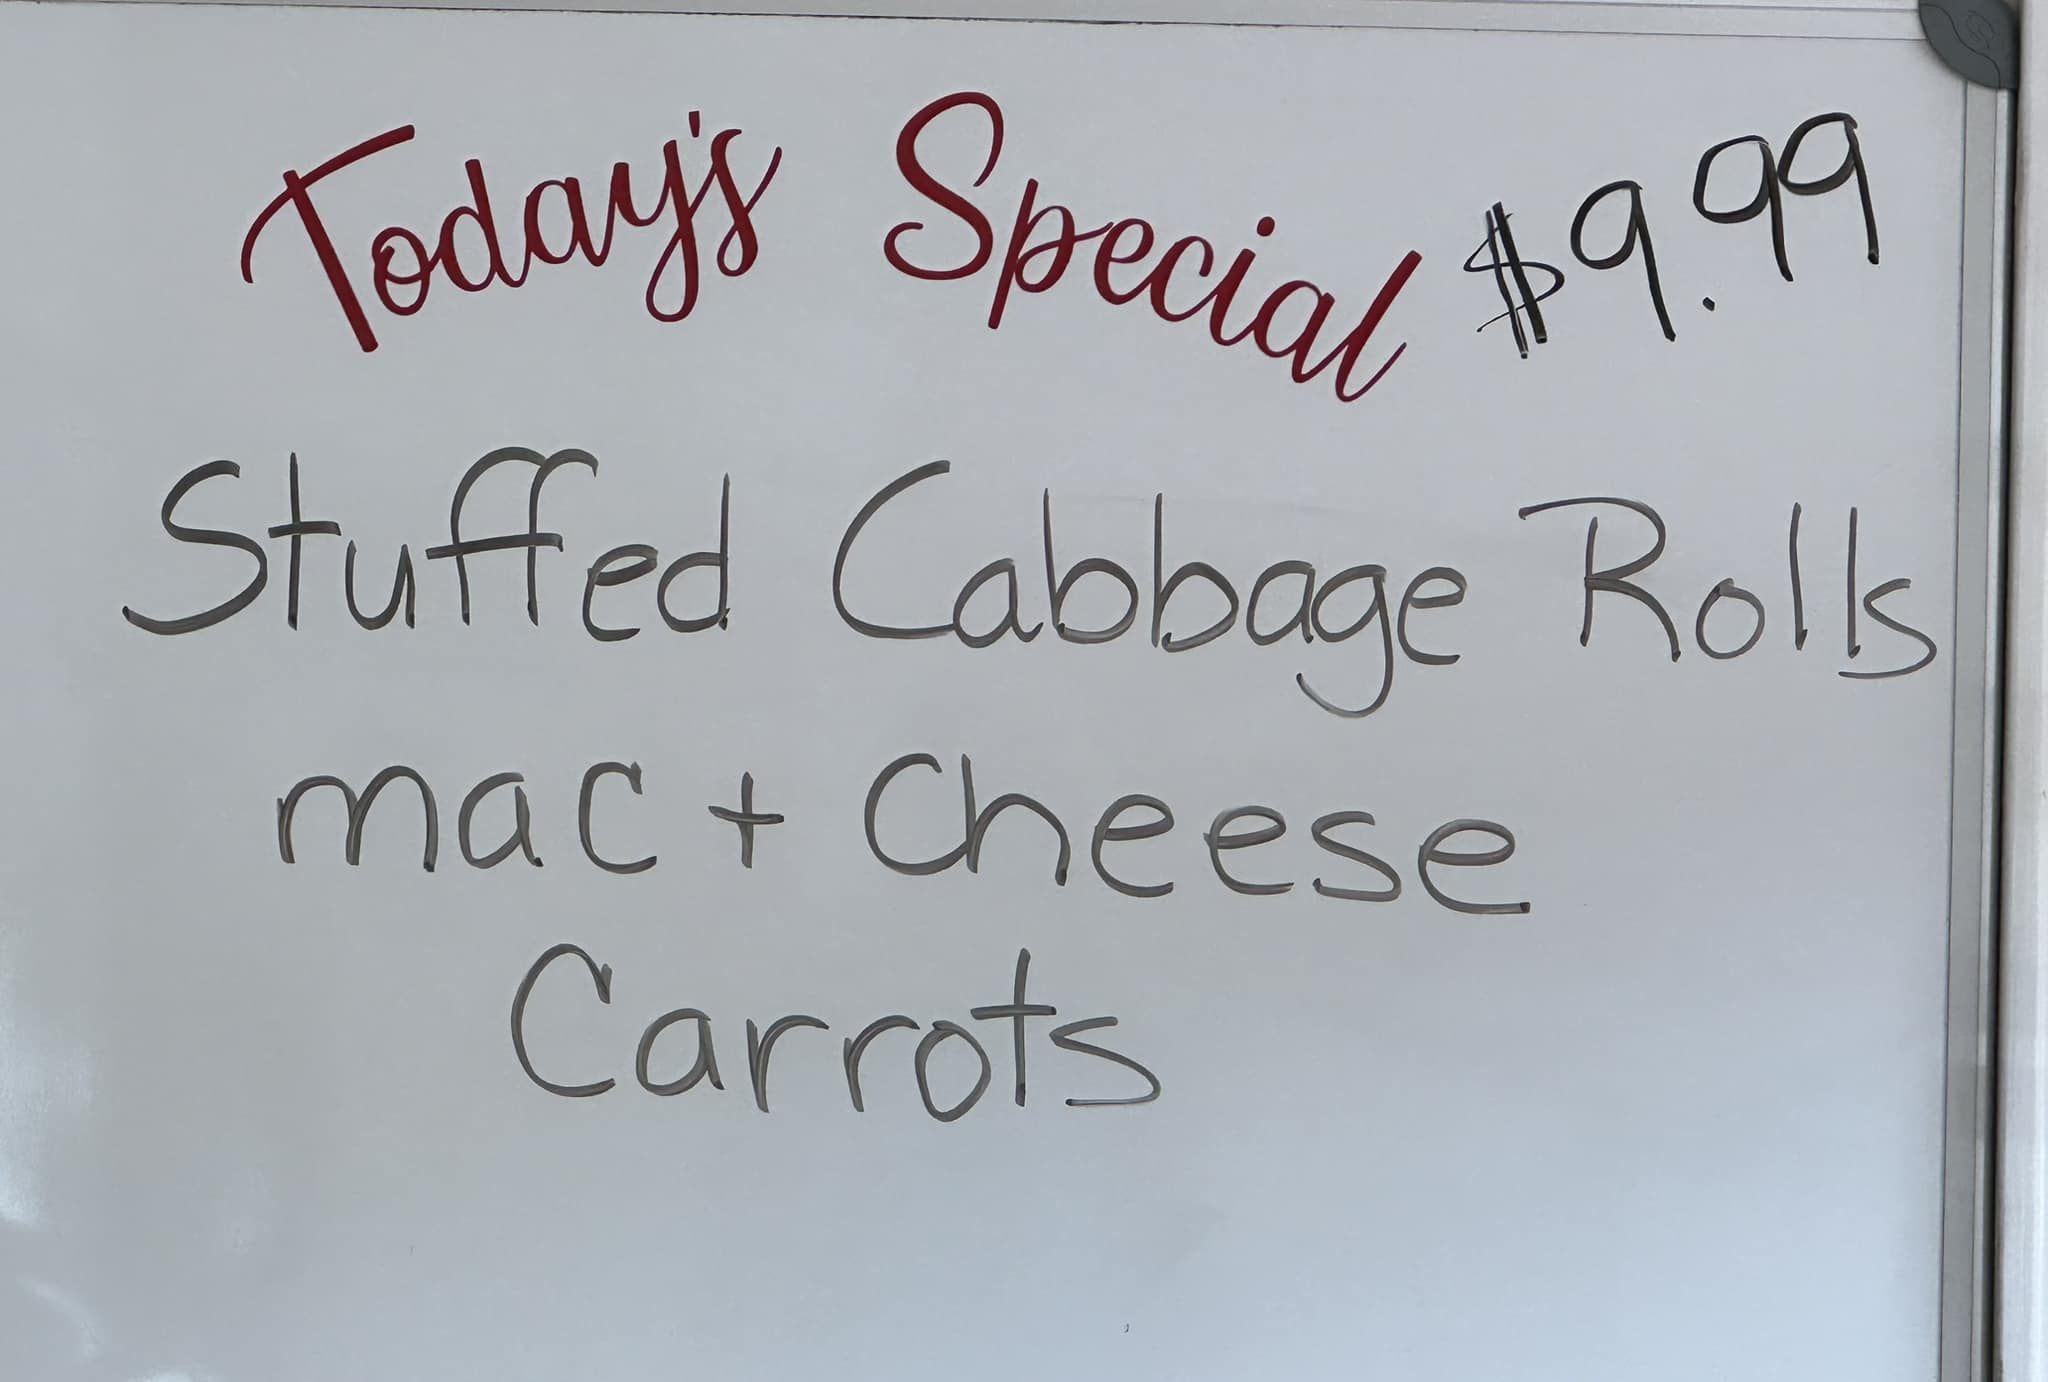 Today's Special $9.99
Stuffed Cabbage Rolls
mac + Cheese
Carrots